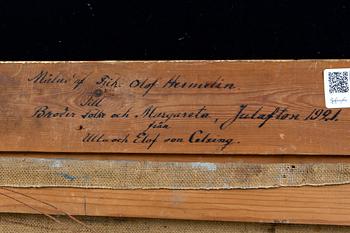 Målad af Frih. Olof Hermelin.
Till
Broder Gösta och Margareta, Julafton 1921
från
Ulla och Elof von Celsing.